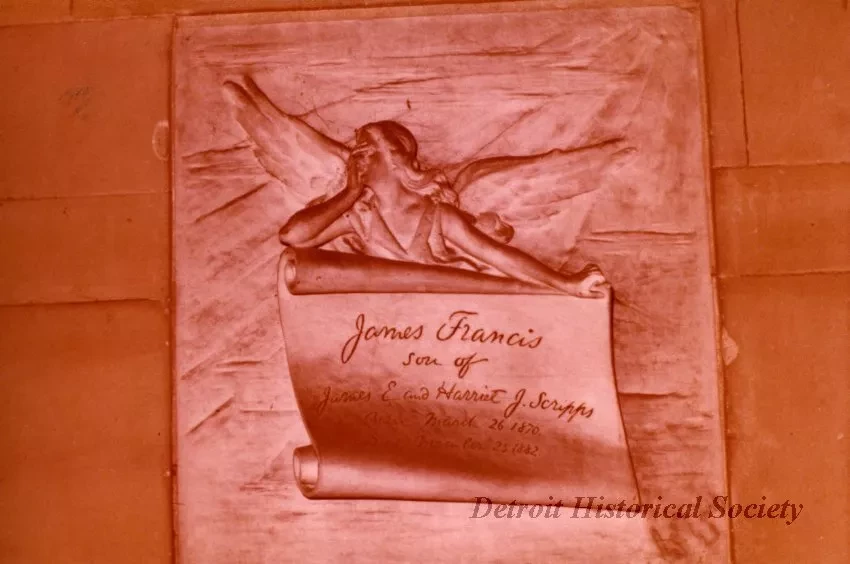 James Francis
son of
James E. and Harriet J. Scripps
March 26 1870
25 1882
Detroit Historical Society